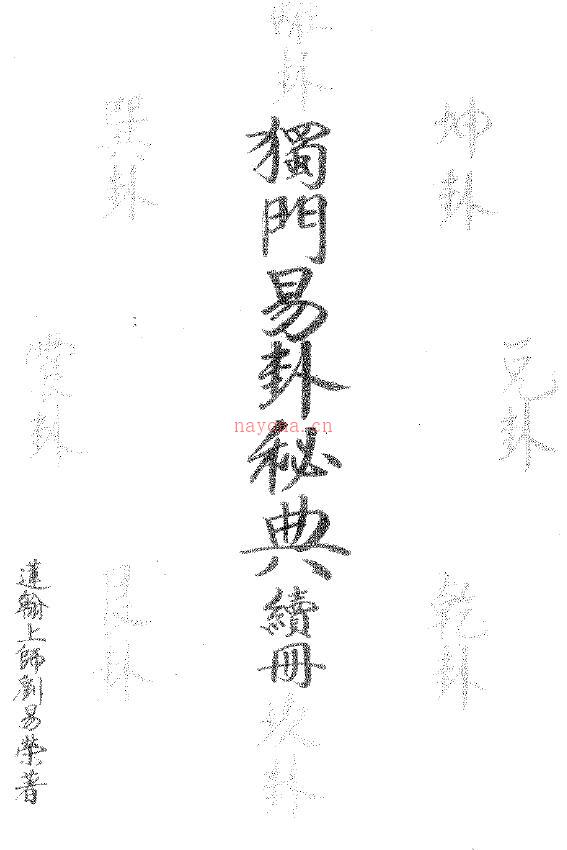 離卦
坤卦
巽卦
獨門易卦秘典續冊
兌卦
震卦
nayona.cn
乾卦
艮卦
坎卦
蓮翰上師劉易榮著